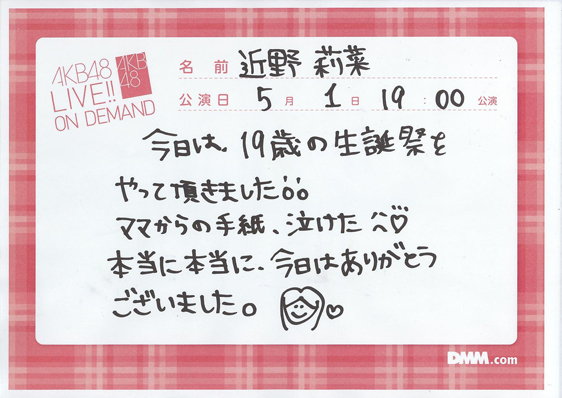 AKB48
LIVE!!
ON DEMAND
AKB
48
名前 近野 莉菜
公演日 5月 1日 19:00 公演
今日は、19歳の生誕祭を
やって頂きました
ママからの手紙、泣けた ^^♡
本当に本当に、今日はありがとう
ございました。
DMM.com